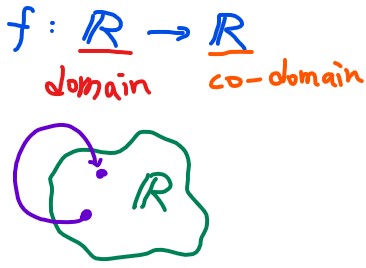 f : ℝ → ℝ
domain co-domain
ℝ